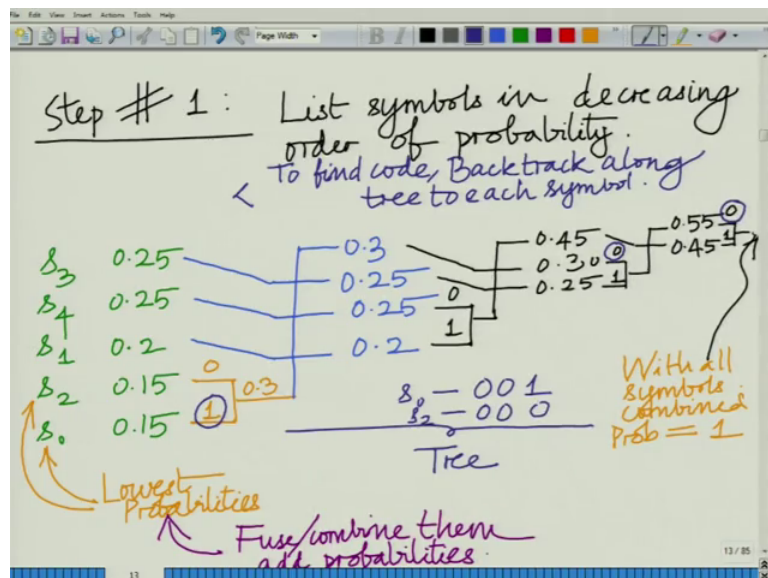 File Edit View Insert Actions Tools Help
Page Width
B I
Step # 1 : List symbols in decreasing
order of probability.
< To find code, Backtrack along
tree to each symbol.
s3 0.25
s4 0.25
s1 0.2
s2 0.15 0
s0 0.15 1
0.3
0.3
0.25
0.25 0
0.2 1
0.45
0.30 0
0.25 1
0.55 0
0.45 1
s0 — 001
s2 — 000
Tree
With all
symbols
combined
Prob = 1
Lowest
Probabilities
Fuse/combine them
add probabilities.
13 / 85
13